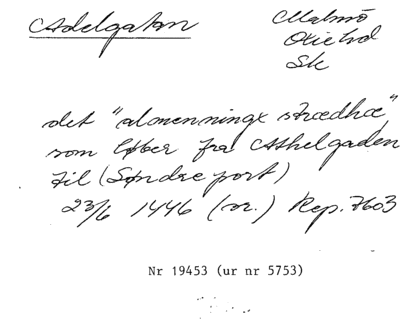 Adelgatan
Malmö
Oxie hd
Sk
det "almenninge strædhæ"
som løber fra Athelgaden
til (Søndre port)
23/6 1446 (or.) Rep. 7603
Nr 19453 (ur nr 5753)